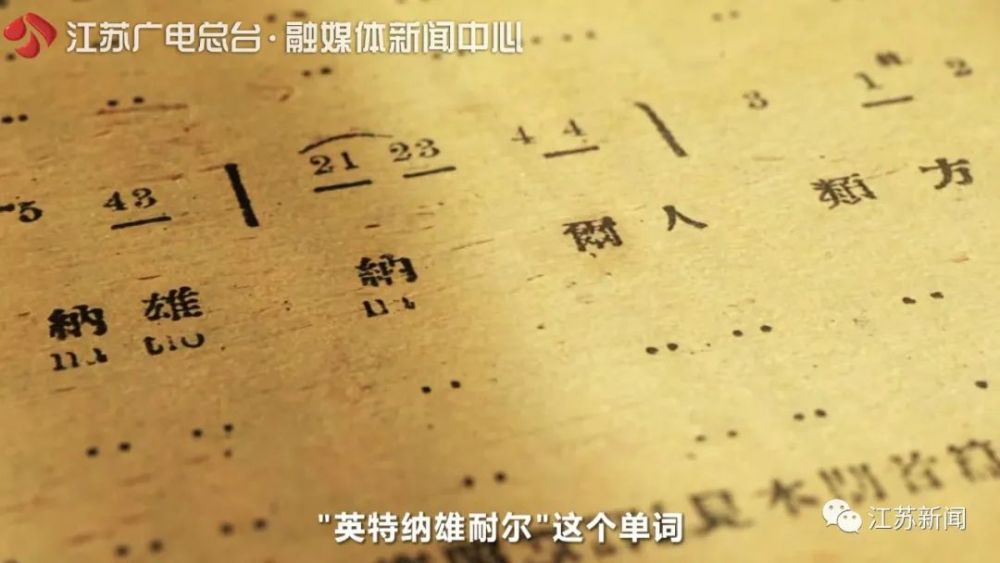 江苏广电总台·融媒体新闻中心
5 43 | 21 23 4 4 | 3 1 2
納 雄 納 爾 人 類 方
na tio na
"英特纳雄耐尔"这个单词
江苏新闻